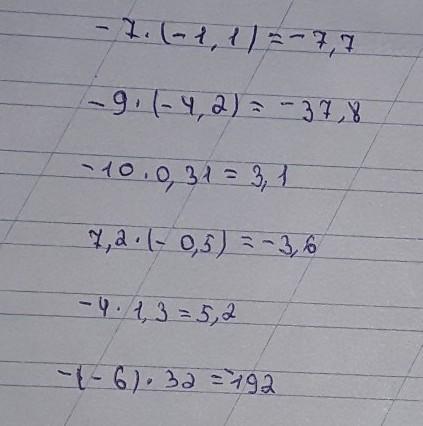 -7·(-1,1)=-7,7
-9·(-4,2)=-37,8
-10·0,31=3,1
7,2·(-0,5)=-3,6
-4·1,3=5,2
-(-6)·32=-192